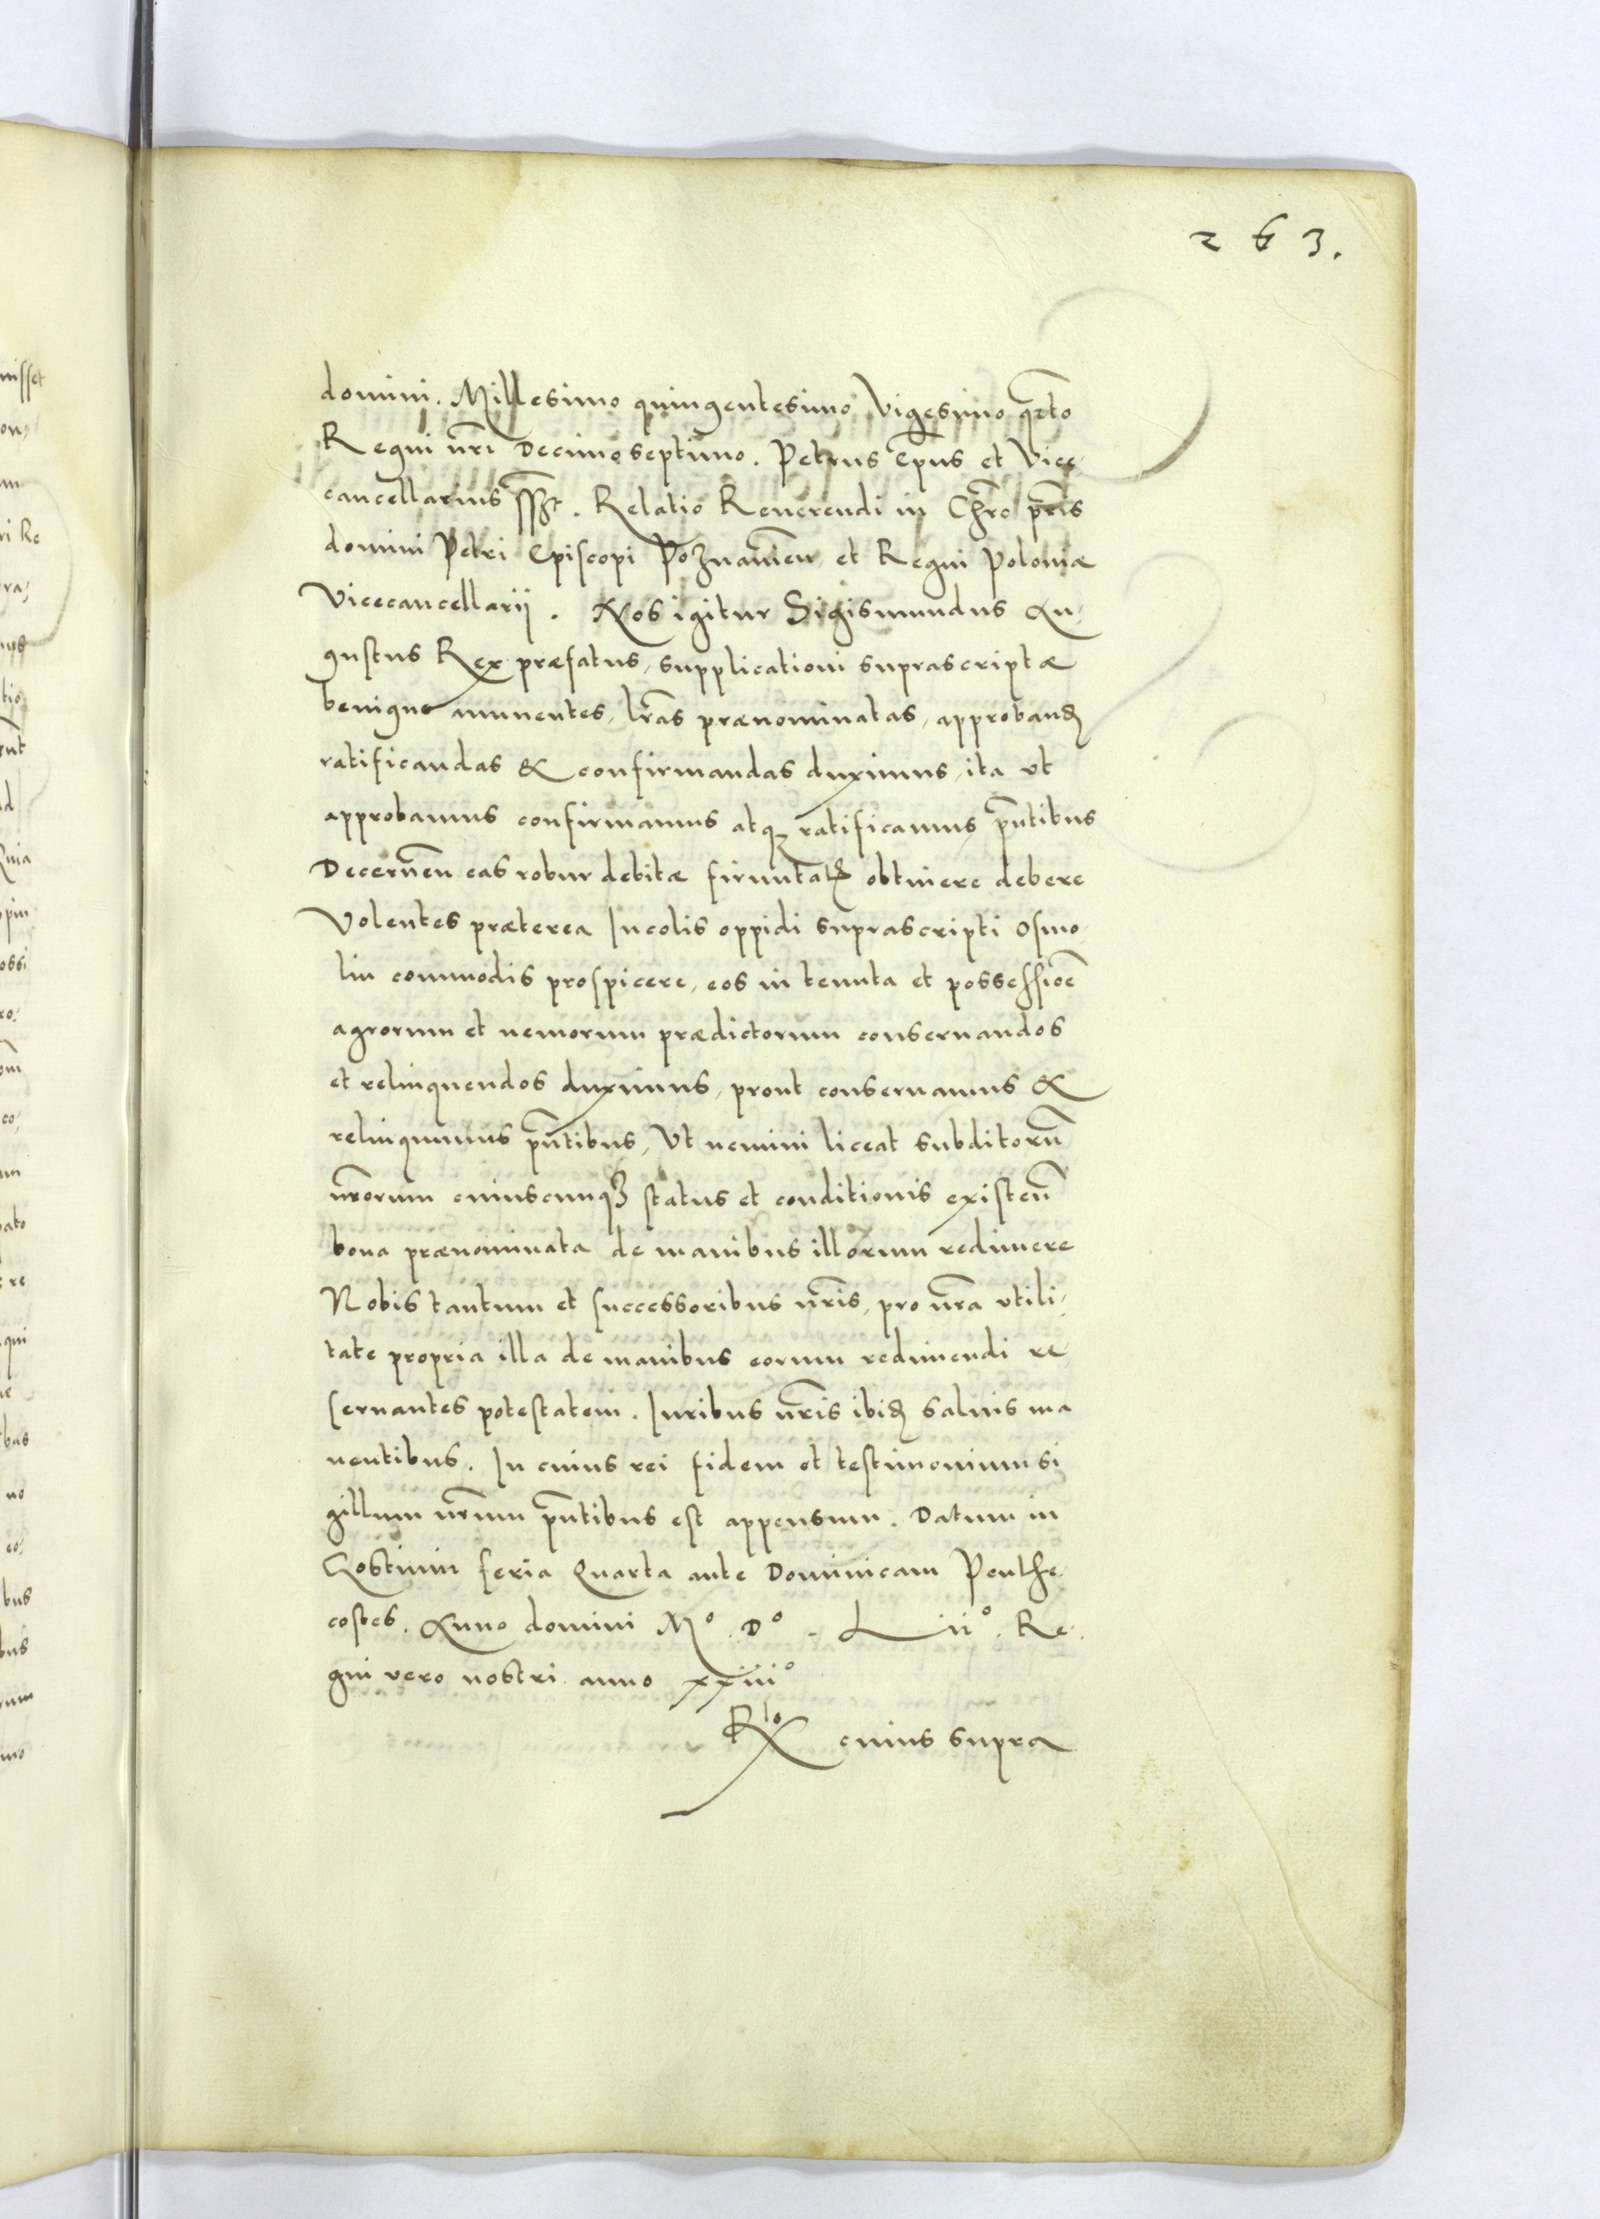 263.
domini. Millesimo quingentesimo Vigesimo qrto
Regni nri Decimo septimo. Petrus Epus et Vice
cancellarius sszt. Relatio Reuerendi in Chro pris
domini Petri Episcopi Poznanien et Regni Poloniæ
Vicecancellarij. Nos igitur Sigismundus Au-
gustus Rex præfatus, supplicationi suprascriptæ
benigne annuentes, lras prænominatas, approband
ratificandas & confirmandas duximus, ita vt
approbamus confirmamus atq ratificamus pntibus
Decernen eas robur debitæ firmitatis obtinere debere
Volentes præterea Incolis oppidi suprascripti Osmo-
lin commodis prospicere, eos in tenuta et possessioe
agrorum et nemorum prædictorum conseruandos
et relinquendos duximus, prout conseruamus &
relinquimus pntibus, Vt nemini liceat subditoru
nrorum cuiuscunq status et conditionis existen
bona prænominata de manibus illorum redimere
Nobis tantum et successoribus nris, pro nra vtili-
tate propria illa de manibus eorum redimendi re-
seruantes potestatem. Iuribus nris ibid saluis ma
nentibus. In cuius rei fidem et testimonium si
gillum nrum pntibus est appensum. Datum in
Gostinin feria Quarta ante Dominicam Penthe-
costes. Anno domini Mº. Dº. Liiº. Re-
gni vero nostri anno xxiiiº
Rlo cuius supra